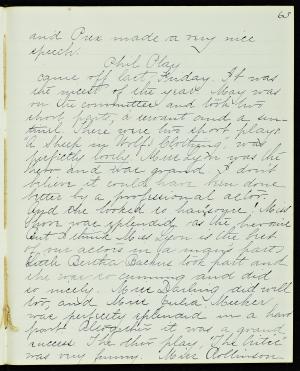 63
and Prex made a very nice
speech.
Phil Play
came off last Friday. It was
the nicest of the year. May was
on the committee and took two
short parts, a servant and a
There were two short plays
A Sheep in Wolf's Clothing, was
perfectly lovely. Miss Lyon was the
hero and was grand. I don't
believe it could have been done
better by a professional actor.
And she looked so handsome. Miss
was splendid as the heroine
but I think Miss Lyon is the best
of our actors in a man's parts
Little Bertha Backus took part and
she was so cunning and did
so nicely. Miss Darling did well
too, and Miss Julia Meeker
was perfectly splendid in a
part. Altogether it was a grand
success. The other play, "The Critic"
was very funny. Miss Rollinson